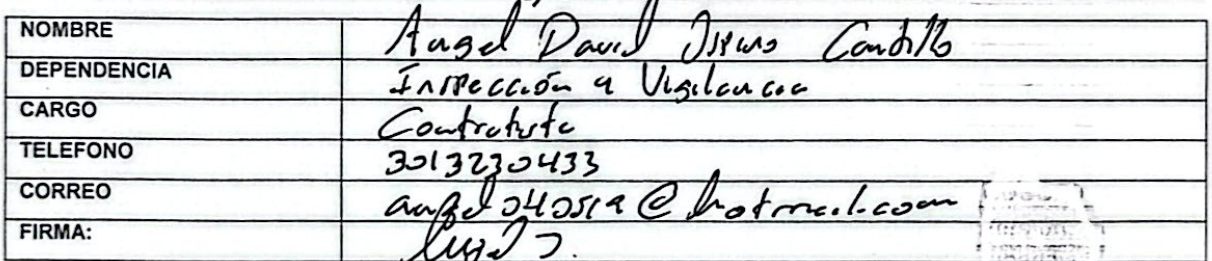 NOMBRE Angel David
DEPENDENCIA Inspección y Vigilancia
CARGO Contratista
TELEFONO 3013230433
CORREO @hotmail.com
FIRMA: